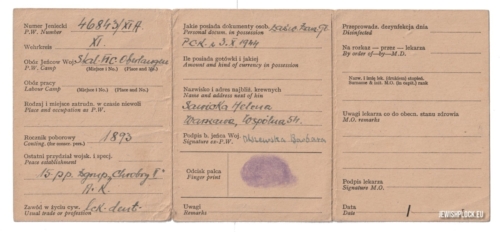 Numer Jeniecki 46843/XI A.
P.W. Number
XI.
Obóz Jeńców Woj. Stal. VI C. Oberlangen
P.W. Camp (Miejsc. i No.) (Place and No.)
Obóz pracy
Labour Camp (Miejsc. i No.) (Place and No.)
Rodzaj i miejsce zatrudn. w czasie niewoli
Place and occupation as P.W.
Rocznik poborowy 1893
Conting. (for conscr. pers.)
Ostatni przydział wojsk. i spec.
Peace establishment
15 p.p. Zgrup. "Chrobry II"
II. K
Zawód w życiu cyw. Lek. dent.
Usual trade or profession
Jakie posiada dokumenty osob.
Personal docum. in possession
P.C.K. z 3.X 1944
Ile posiada gotówki i jakiej
Amount and kind of currency in possession
Nazwisko i adres najbliż. krewnych
Name and address next of kin
Sawicka Helena
Warszawa, Wspólna 54.
Podpis b. jeńca Woj.
Signature ex-P.W. Barbara
Odcisk palca
Finger print
Uwagi
Remarks
Przeprowadz. dezynfekcja dnia
Disinfected
Na rozkaz — przez — lekarza
By order of—by—M.D.
Uwagi lekarza co do obecn. stanu zdrowia
M.O. remarks
Podpis lekarza
Signature M.O.
Data
Date
JEWISHPLOCK.EU